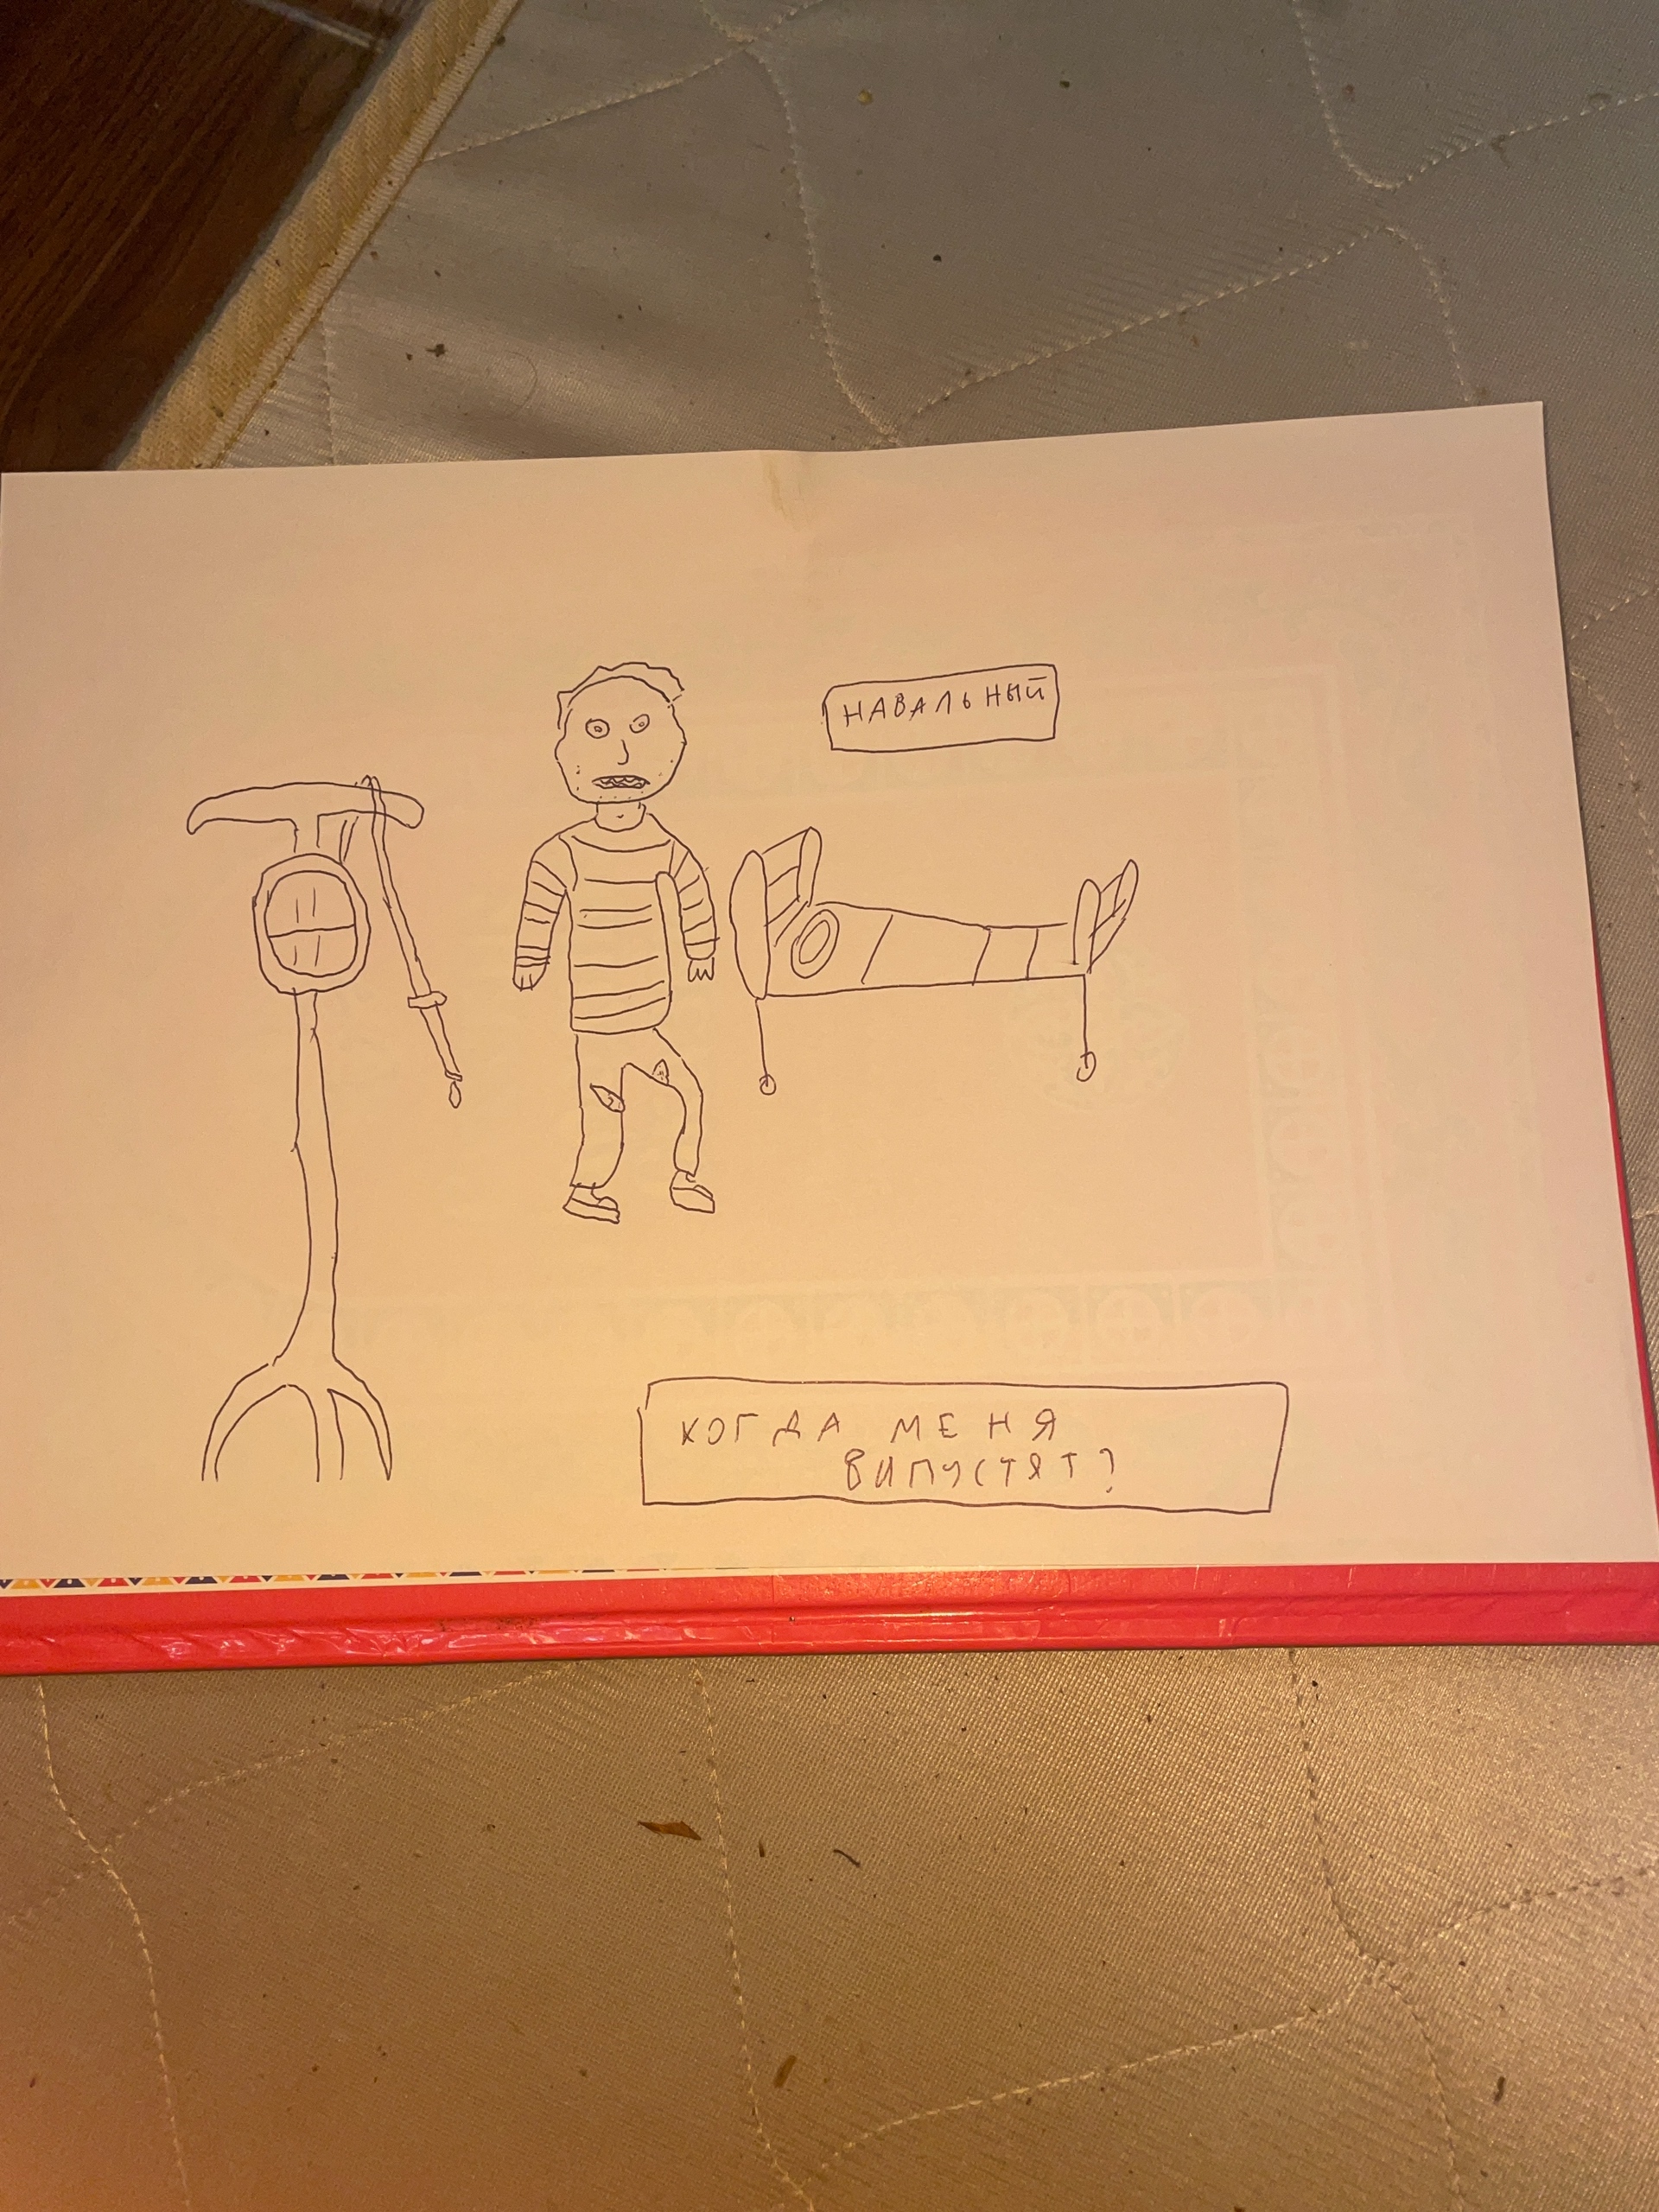 НАВАЛЬНЫЙ
КОГДА МЕНЯ
ВИПУСТЯТ?